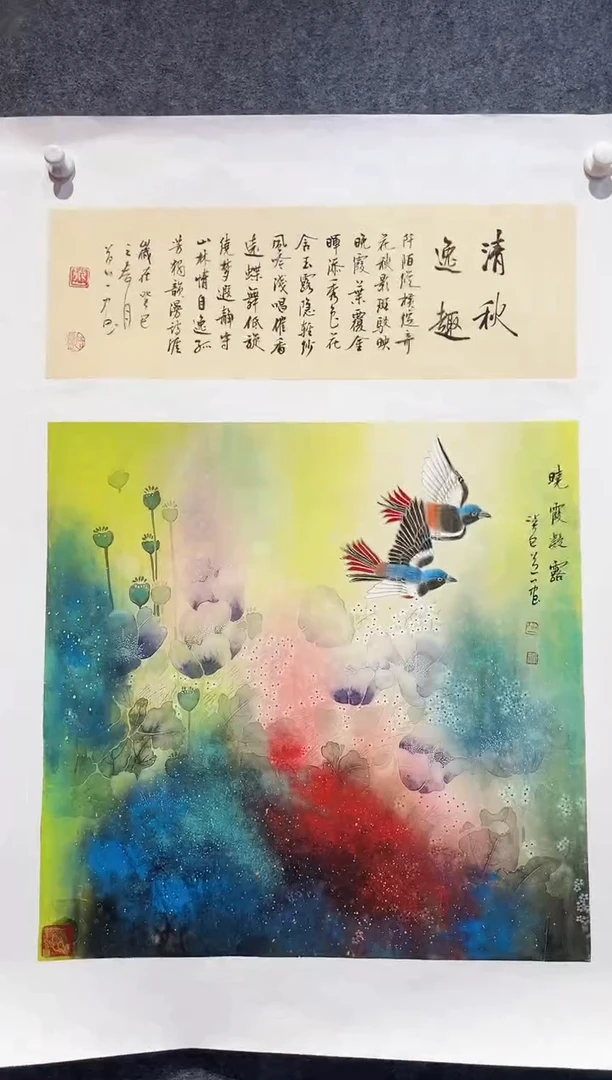 清秋
逸趣
阡陌縱橫奇
花秋影斑駁映
晚霞葉覆金
暉添秀色花
含玉露隱輕紗
風吟淺唱催香
遠蝶舞低旋
繞夢遐靜守
山林情自逸孤
芳獨韻漫詩涯
歲在癸巳
之春月
曉霞凝露
癸巳